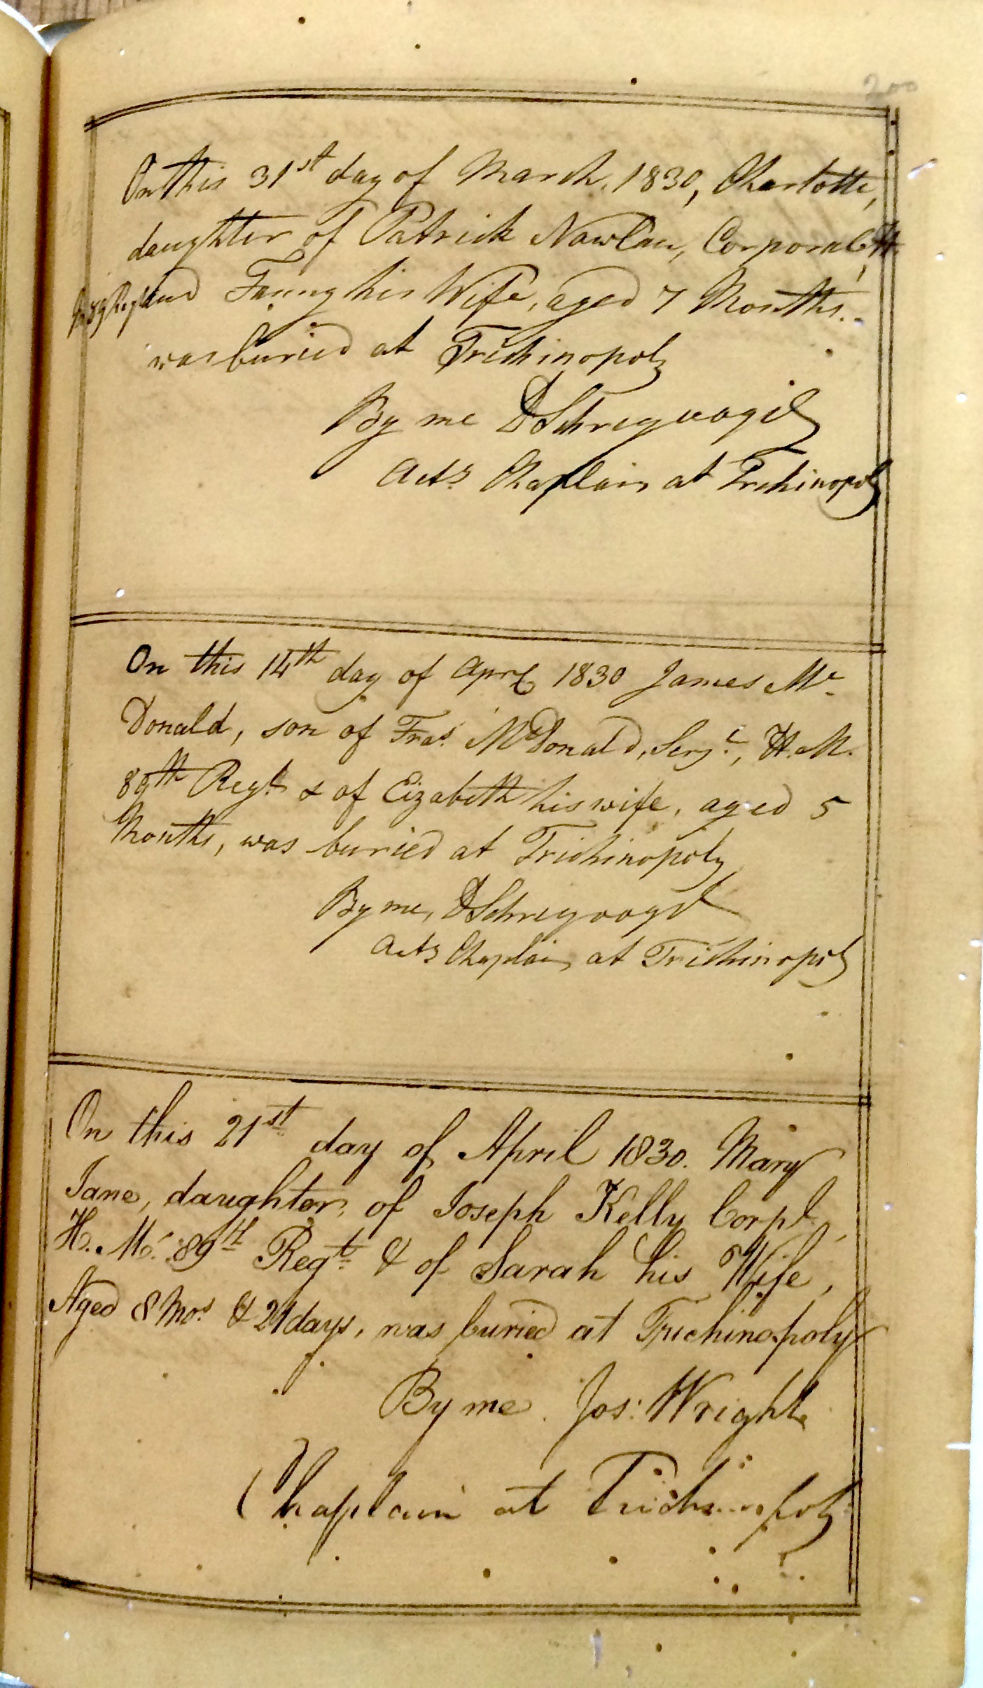 200
On this 31st day of March, 1830, Charlotte,
daughter of Patrick Nowlan, Corporal, H.
M. 89 Regt and Fanny his Wife, aged 7 Months.
was buried at Trichinopoly
By me D Schreyvogel
Actg Chaplain at Trichinopoly
On this 14th day of Aprl 1830 James Mc
Donald, son of Fras. McDonald, Serjt., H. M.
89th Regt & of Elizabeth his wife, aged 5
Months, was buried at Trichinopoly
By me, D Schreyvogel
Actg Chaplain at Trichinopoly
On this 21st day of April 1830. Mary
Jane, daughter, of Joseph Kelly Corpl,
H. M. 89th Regt & of Sarah his Wife,
Aged 8 Mos & 21 days, was buried at Trichinopoly
By me. Jos: Wright
Chaplain at Trichinopoly